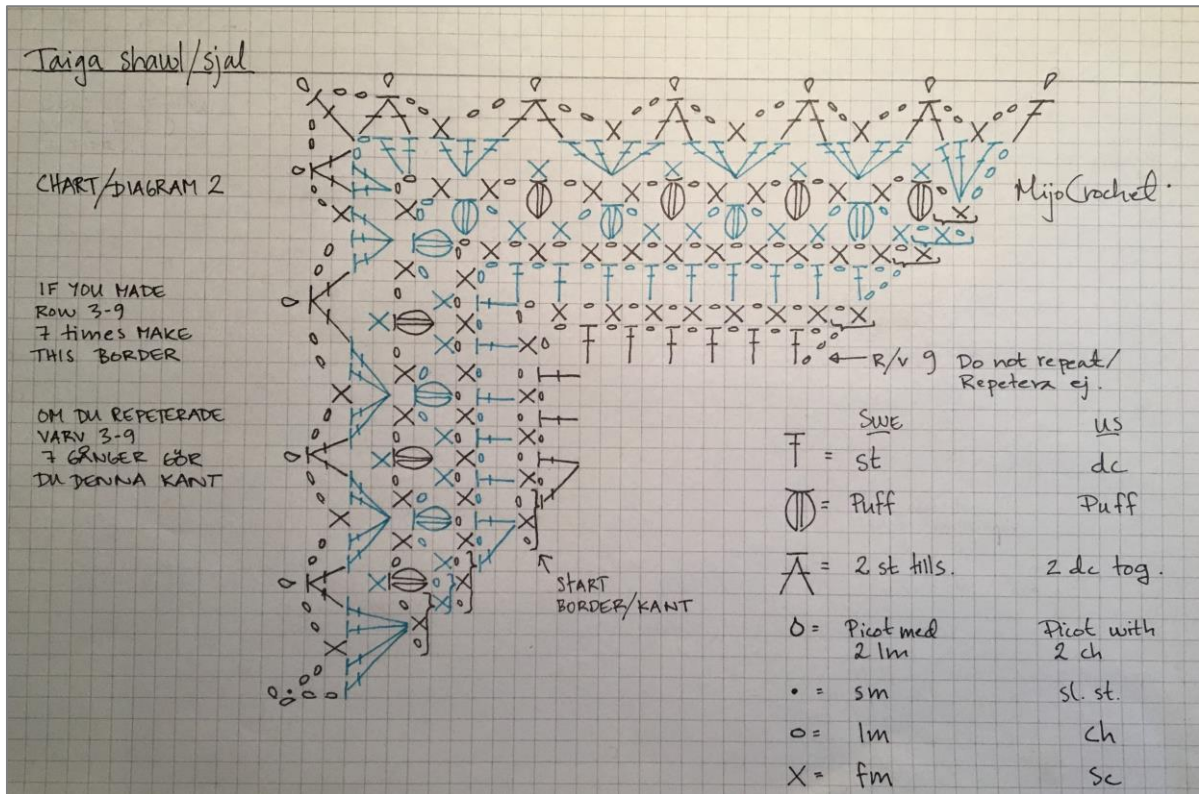 Taiga shawl/sjal
CHART/DIAGRAM 2
MijoCrochet.
IF YOU MADE
ROW 3-9
7 times MAKE
THIS BORDER
OM DU REPETERADE
VARV 3-9
7 GÅNGER GÖR
DU DENNA KANT
← R/v 9 Do not repeat/
Repetera ej.
START
BORDER/KANT
SWE US
= st dc
= Puff Puff
= 2 st tills. 2 dc tog.
= Picot med Picot with
2 lm 2 ch
• = sm sl. st.
o = lm ch
X = fm Sc